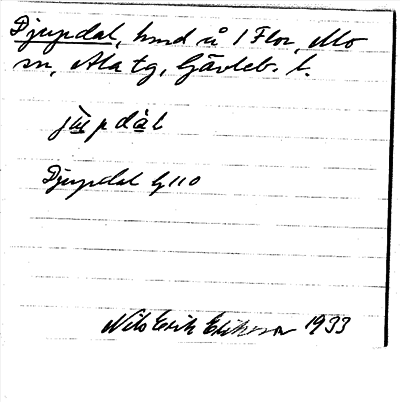 Djupdal, hmd å 1 Flor, Mo
sn, Ala tg, Gävleb. l.
jupdàl
Djupdal hj 110
Nils Erik Eriksson 1933